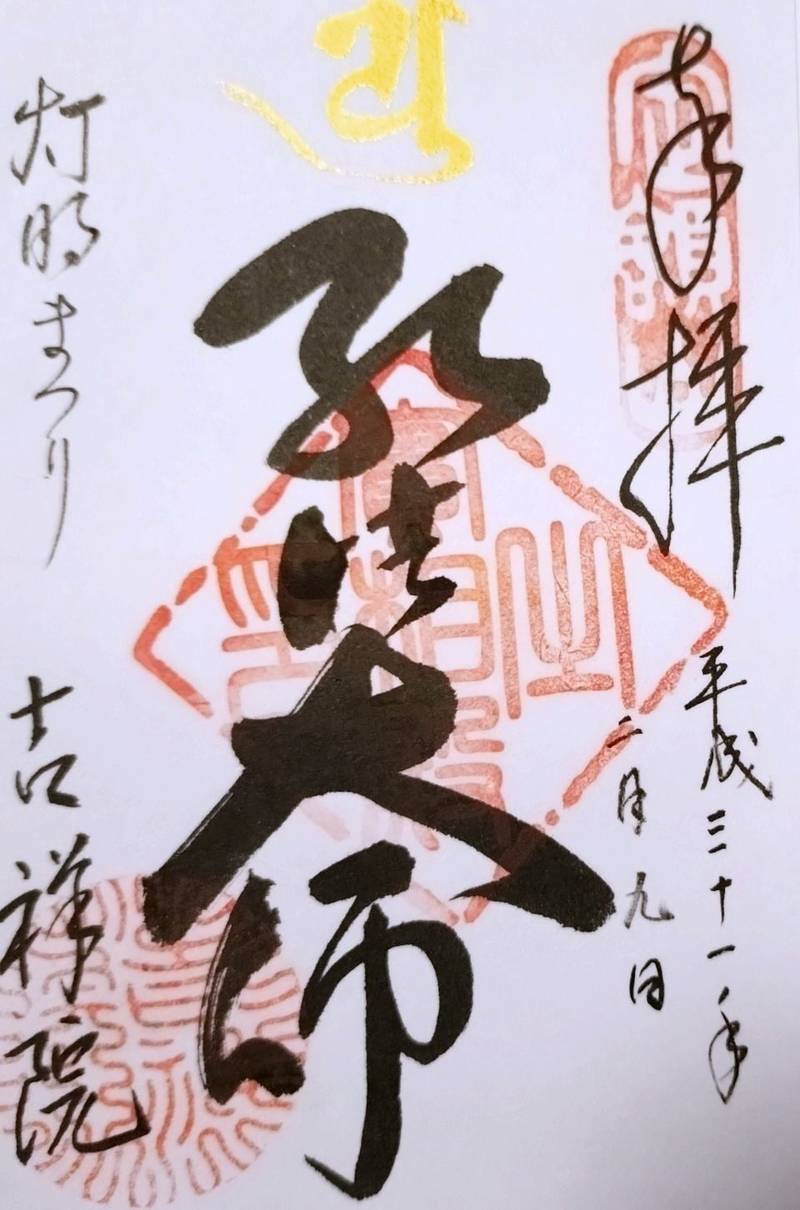 奉拝
平成三十一年
二月九日
弘法大師
灯明まつり
吉祥院